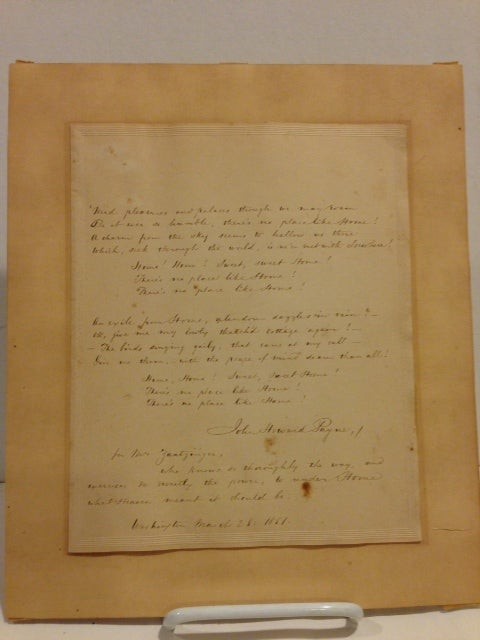 'Mid pleasures and palaces though we may roam
Be it ever so humble, there's no place like Home!
A charm from the sky seems to hallow us there
Which, seek through the world, is ne'er met with elsewhere!
Home! Home! Sweet, sweet Home!
There's no place like Home!
There's no place like Home!
An exile from Home, splendour dazzles in vain!—
Oh, give me my lowly thatch'd cottage again!—
—The birds singing gaily, that came at my call—
Give me them, with the peace of mind dearer than all!
Home, Home! Sweet, Sweet Home!
There's no place like Home!
There's no place like Home!
John Howard Payne
for Mrs
who knows so thoroughly the way, and
exercises so sweetly the power, to render Home
what Heaven meant it should be.
Washington March 1851.